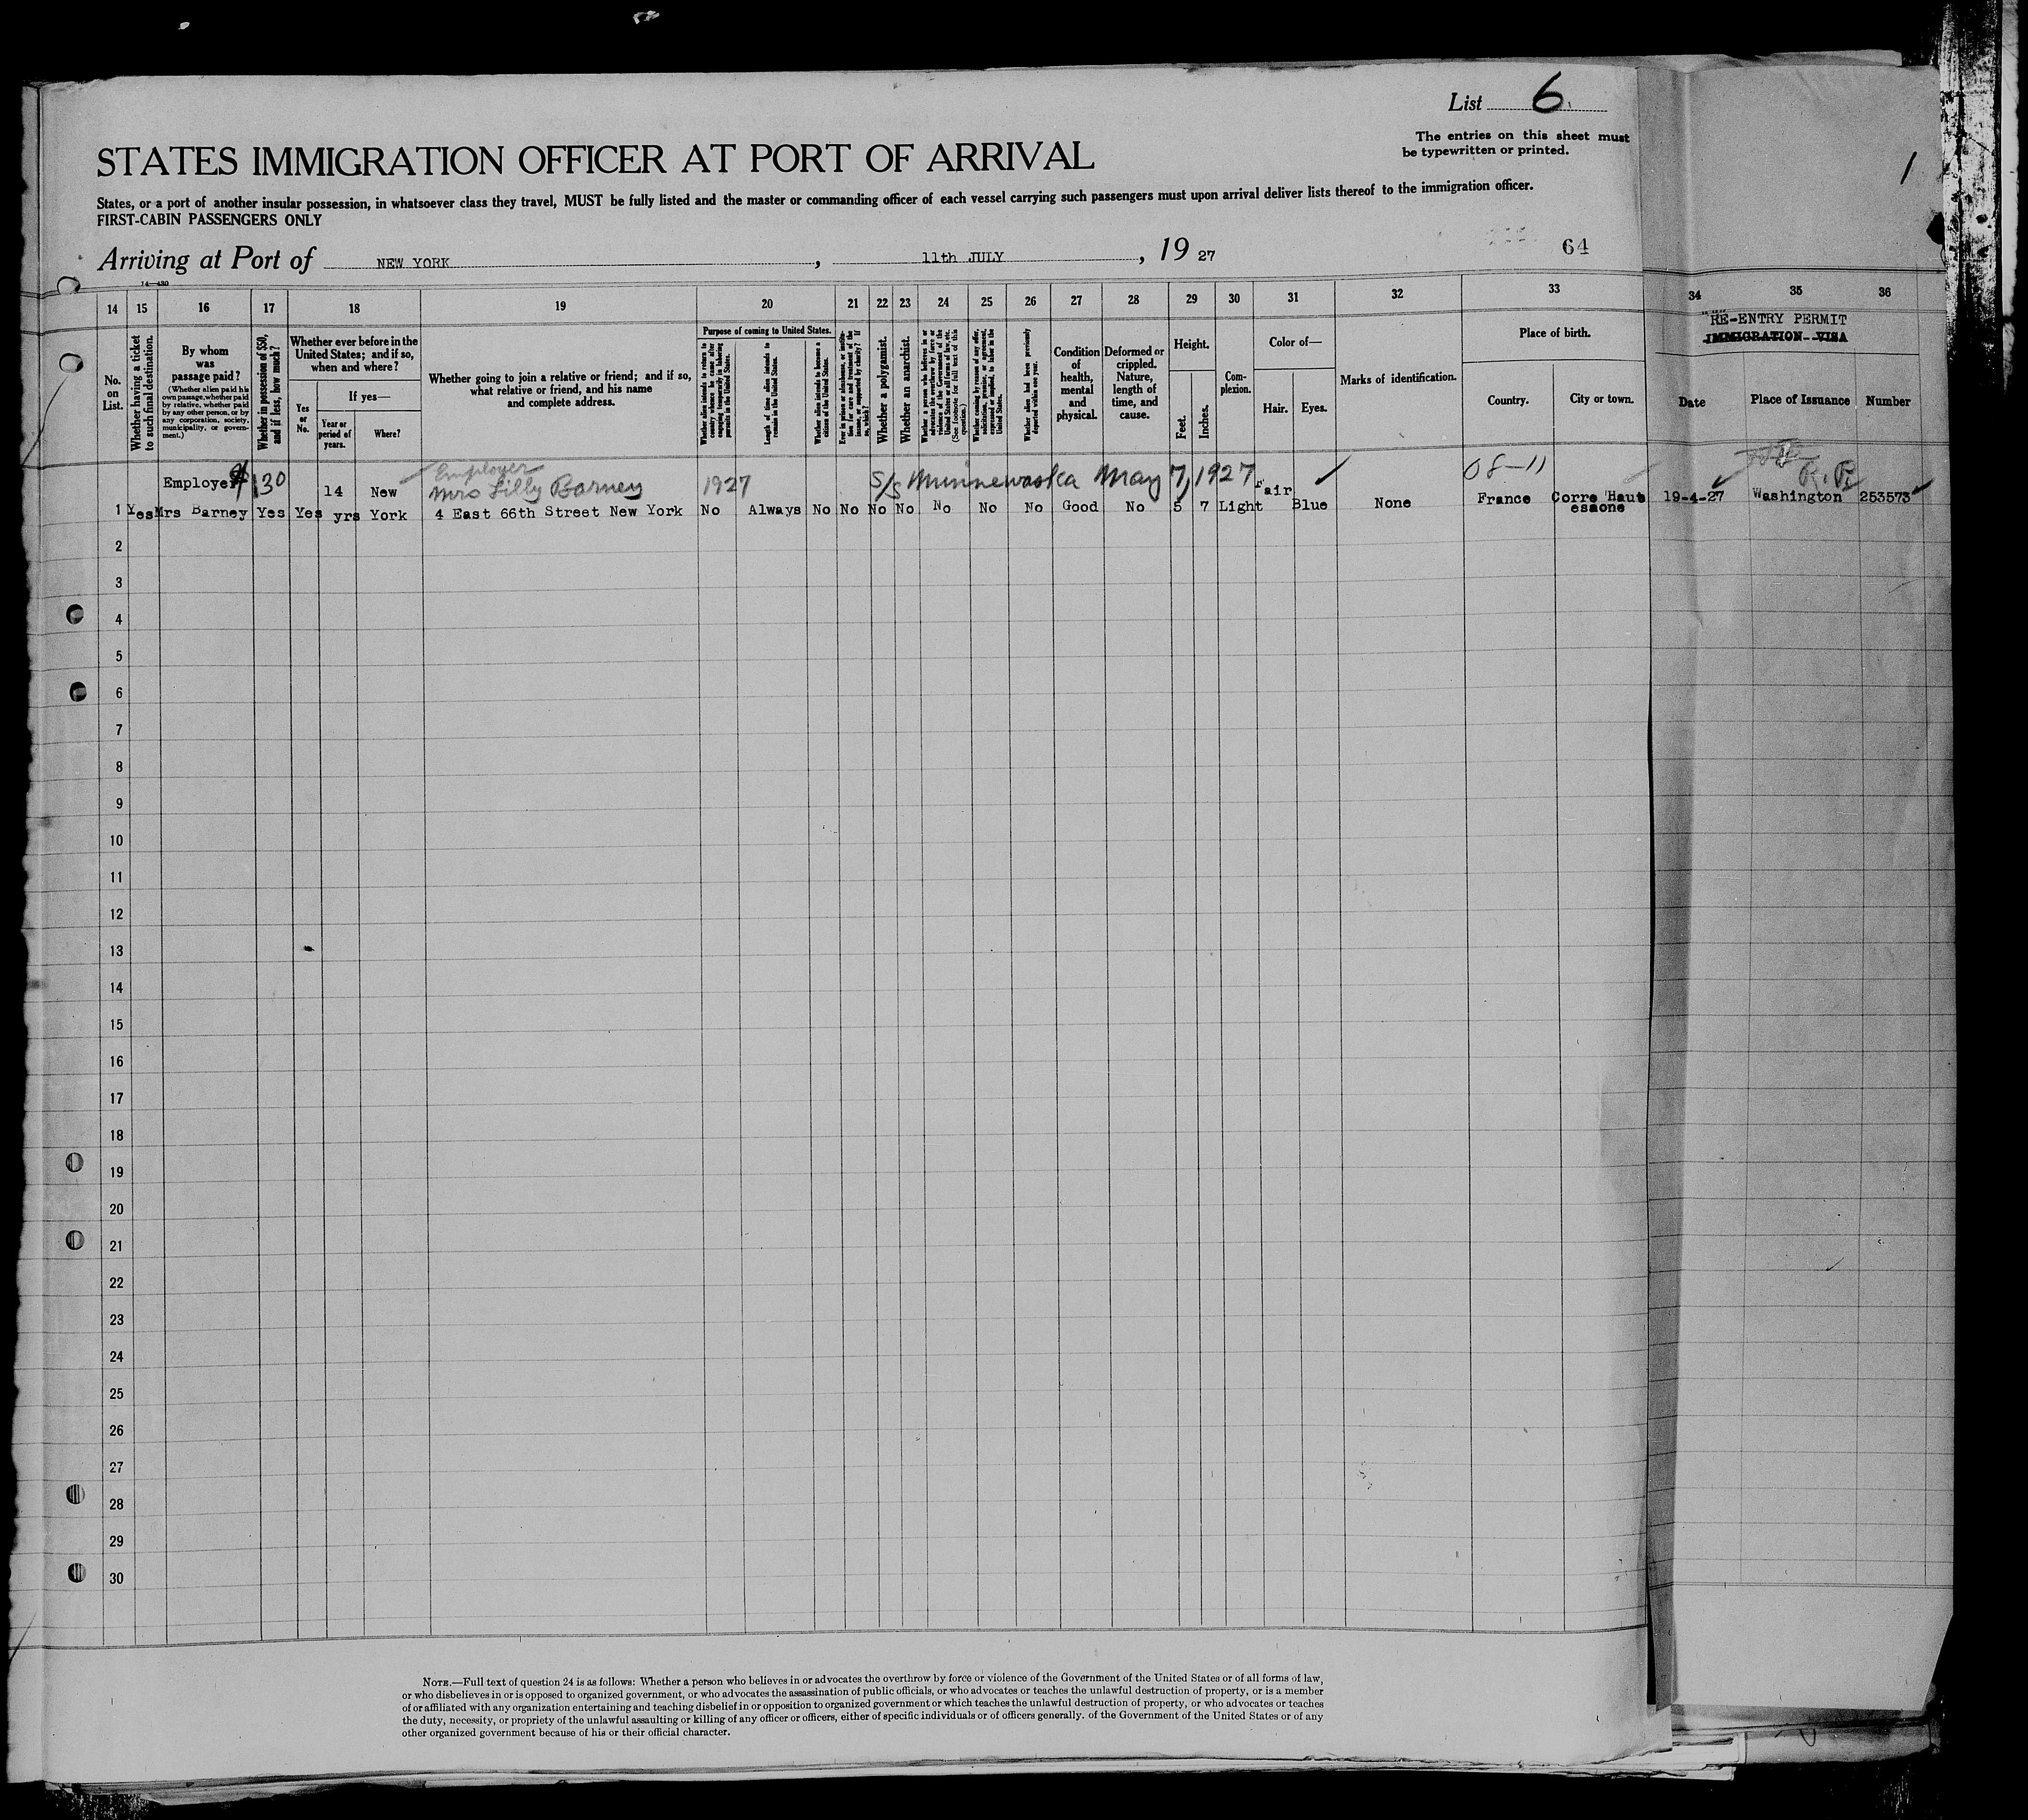 List 6
The entries on this sheet must
be typewritten or printed.
1
STATES IMMIGRATION OFFICER AT PORT OF ARRIVAL
States, or a port of another insular possession, in whatsoever class they travel, MUST be fully listed and the master or commanding officer of each vessel carrying such passengers must upon arrival deliver lists thereof to the immigration officer.
FIRST-CABIN PASSENGERS ONLY
Arriving at Port of NEW YORK, 11th JULY, 19 27
64
14 15 16 17 18 19 20 21 22 23 24 25 26 27 28 29 30 31 32 33 34 35 36
No.
on
List.
Whether having a ticket
to such final destination.
By whom
was
passage paid?
(Whether alien paid his
own passage, whether paid
by relative, whether paid
by any other person, or by
any corporation, society,
municipality, or govern-
ment.)
Whether in possession of $50,
and if less, how much?
Whether ever before in the
United States; and if so,
when and where?
Yes
or
No.
If yes—
Year or
period of
years.
Where?
Whether going to join a relative or friend; and if so,
what relative or friend, and his name
and complete address.
Purpose of coming to United States.
Whether alien intends to return to
country whence he came after
engaging temporarily in laboring
pursuits in the United States.
Length of time alien intends to
remain in the United States.
Whether alien intends to become a
citizen of the United States.
Ever in prison or almshouse, or institu-
tion for care and treatment of the
insane, or supported by charity? If
so, which?
Whether a polygamist.
Whether an anarchist.
Whether a person who believes in or
advocates the overthrow by force or
violence of the Government of the
United States or all forms of law, etc.
(See footnote for full text of this
question.)
Whether coming by reason of any offer,
solicitation, promise, or agreement,
expressed or implied, to labor in the
United States.
Whether alien had been previously
deported within one year.
Condition
of
health,
mental
and
physical.
Deformed or
crippled.
Nature,
length of
time, and
cause.
Height.
Feet.
Inches.
Com-
plexion.
Color of—
Hair.
Eyes.
Marks of identification.
Place of birth.
Country.
City or town.
RE-ENTRY PERMIT
IMMIGRATION VISA
Date
Place of Issuance
Number
Employer $130 14 New Employer
Mrs Lilly Barney 1927 S/S Minnewaska May 7, 1927 Fair 08-11 R.P.
1 Yes Mrs Barney Yes Yes yrs York 4 East 66th Street New York No Always No No No No No No No Good No 5 7 Light Blue None France Corre Haute 19-4-27 Washington 253573
esaone
2
3
4
5
6
7
8
9
10
11
12
13
14
15
16
17
18
19
20
21
22
23
24
25
26
27
28
29
30
NOTE.—Full text of question 24 is as follows: Whether a person who believes in or advocates the overthrow by force or violence of the Government of the United States or of all forms of law,
or who disbelieves in or is opposed to organized government, or who advocates the assassination of public officials, or who advocates or teaches the unlawful destruction of property, or is a member
of or affiliated with any organization entertaining and teaching disbelief in or opposition to organized government or which teaches the unlawful destruction of property, or who advocates or teaches
the duty, necessity, or propriety of the unlawful assaulting or killing of any officer or officers, either of specific individuals or of officers generally, of the Government of the United States or of any
other organized government because of his or their official character.